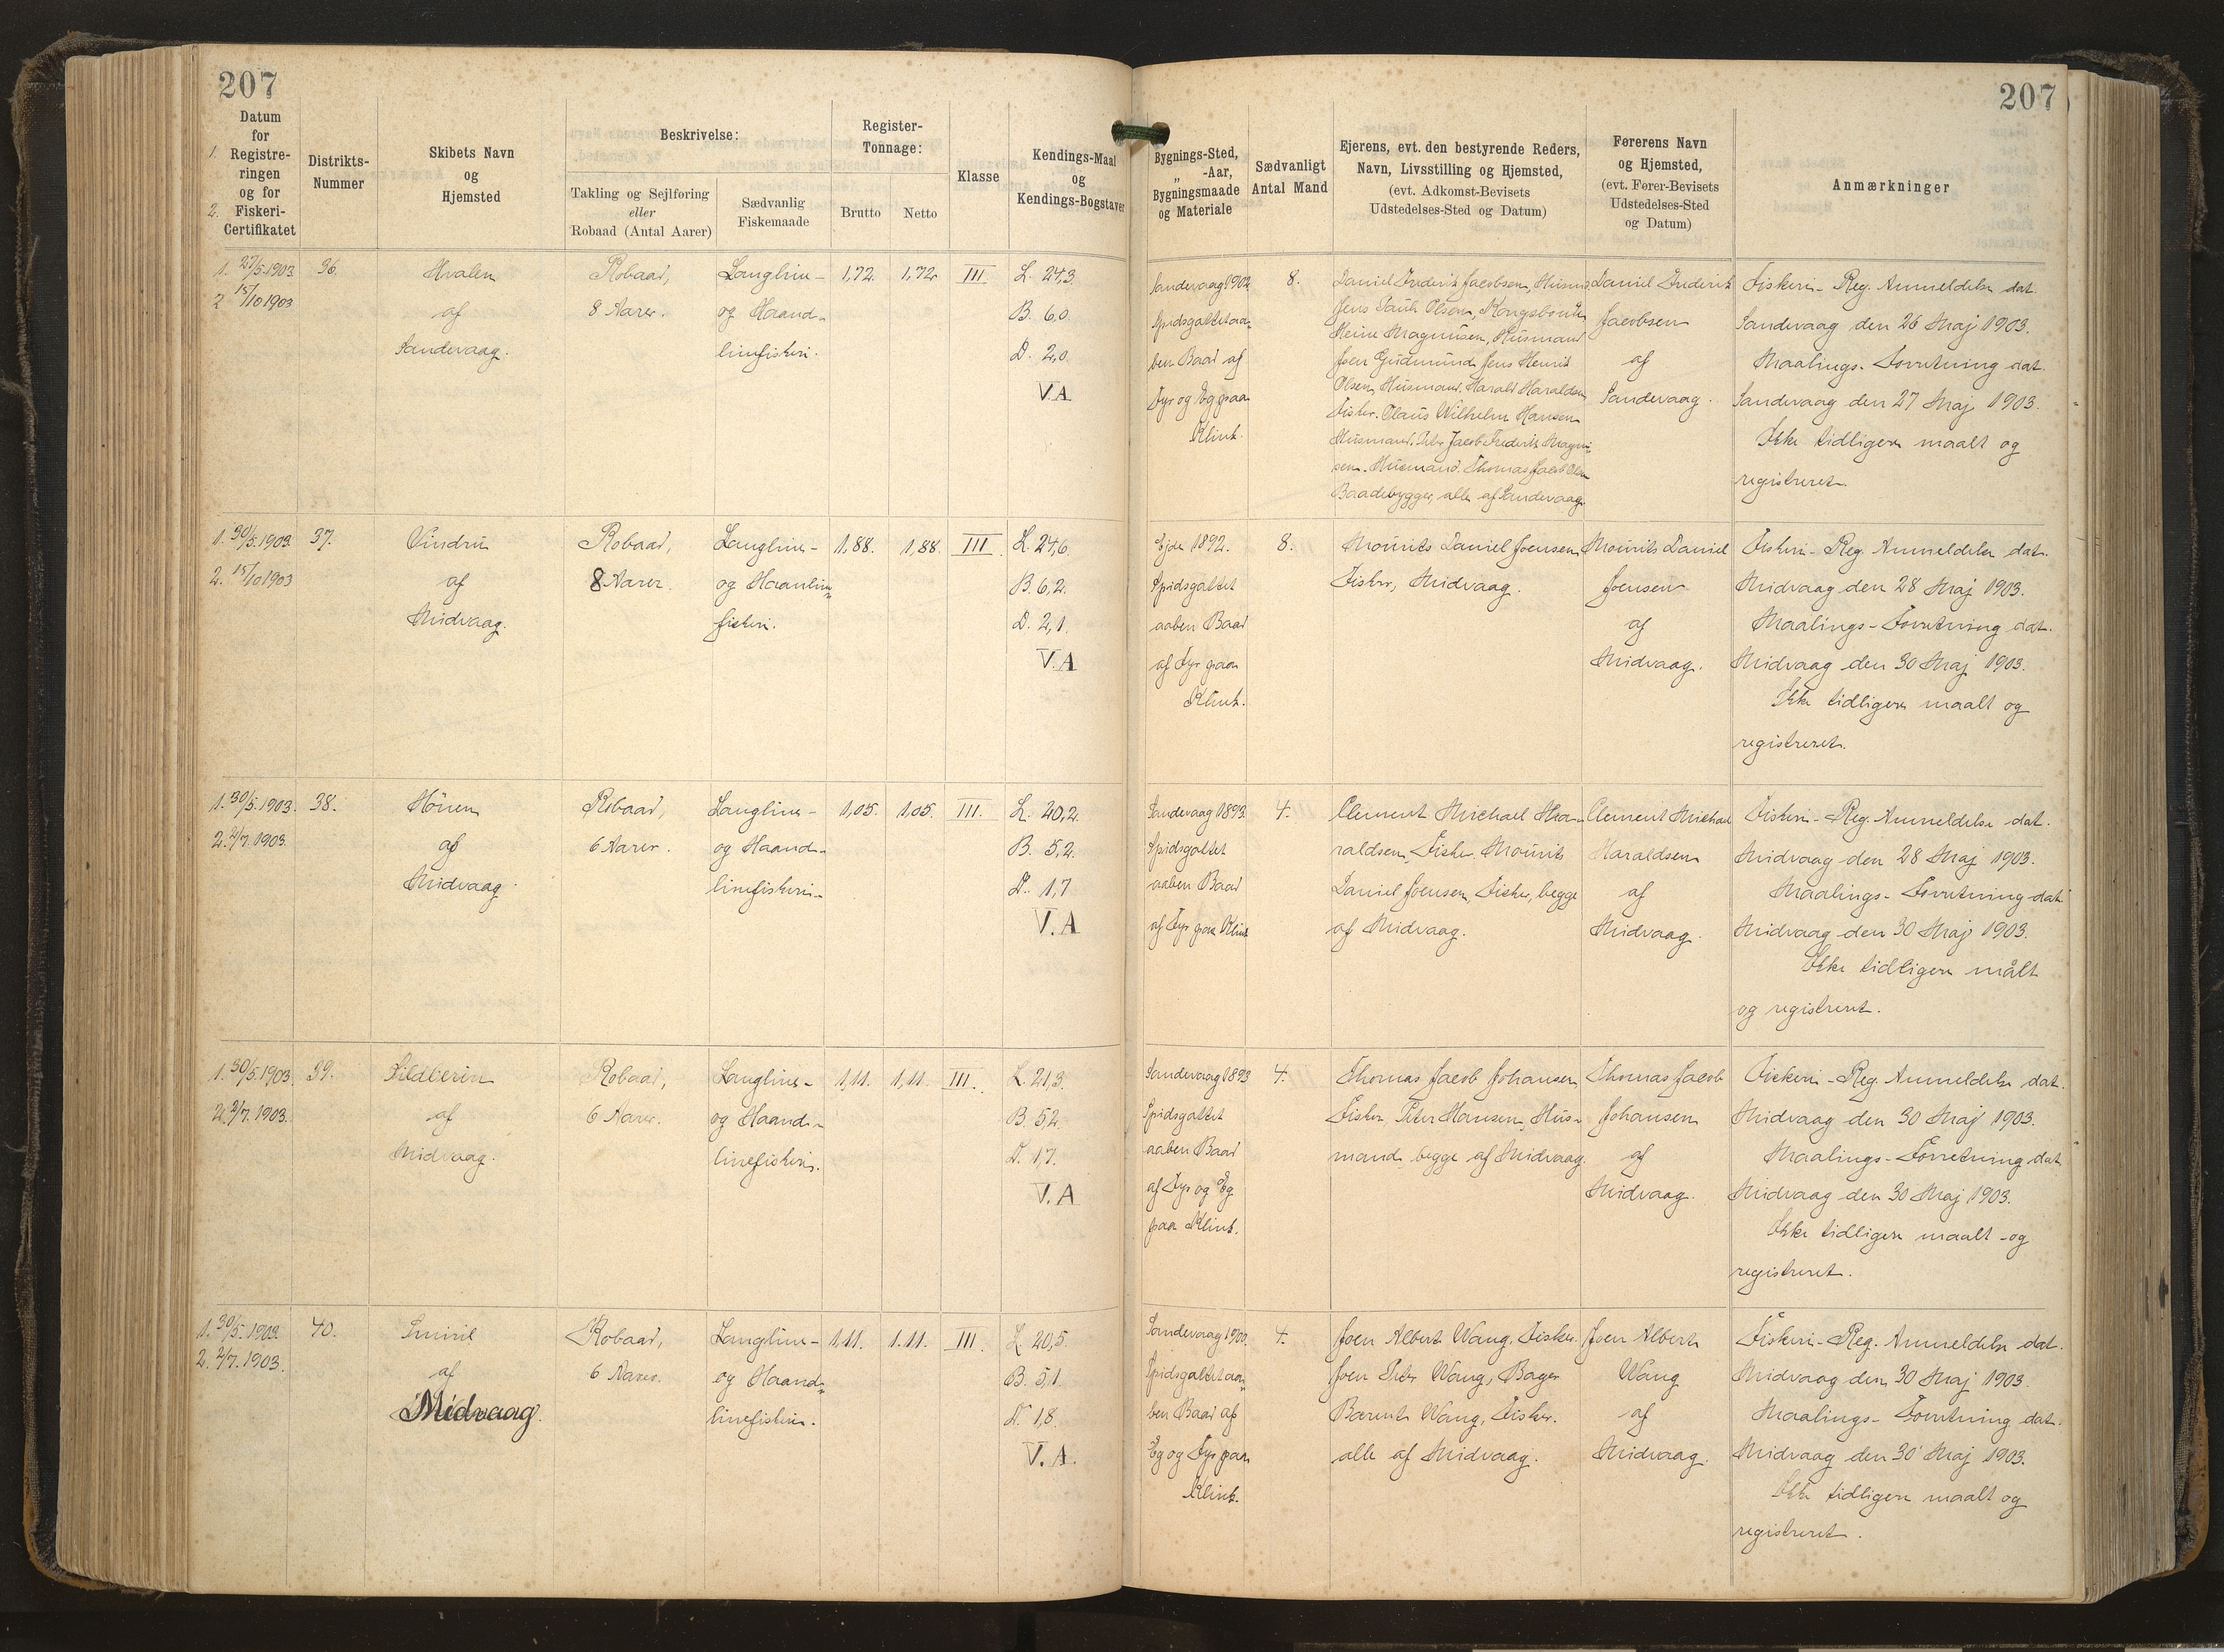 207
207
Datum
for
1. Registre-
ringen
og for
2. Fiskeri-
Certifikatet
Distrikts-
Nummer
Skibets Navn
og
Hjemsted
Beskrivelse:
Takling og Sejlføring
eller
Robaad (Antal Aarer)
Sædvanlig
Fiskemaade
Register-
Tonnage:
Brutto
Netto
Klasse
Kendings-Maal
og
Kendings-Bogstaver
Bygnings-Sted,
„ -Aar,
Bygningsmaade
og Materiale
Sædvanligt
Antal Mand
Ejerens, evt. den bestyrende Reders,
Navn, Livsstilling og Hjemsted,
(evt. Adkomst-Bevisets
Udstedelses-Sted og Datum)
Førerens Navn
og Hjemsted,
(evt. Fører-Bevisets
Udstedelses-Sted
og Datum)
Anmærkninger
1. 27/5.1903
2 15/10 1903
36.
Hvalen
af
Sandevaag.
Robaad,
8 Aarer.
Langline-
og Haand-
linefiskeri.
1,72.
1,72
III.
L. 24,3
B. 6,0
D. 2,0
V.A
Sandevaag 1902
Spidsgattet aa-
ben Baad af
Fyr og Eg paa
Klink.
8.
Daniel Frederik Jacobsen, Husm.
Jens Paule Olsen, Kongsbonde
Heine Magnusen, Husmand
Joen Gudmund Jens Henrik
Olsen, Husmand. Harald Haraldsen
Fisker. Claus Wilhelm Hansen
Husmand. Peter Jacob Frederik Magnu-
sen. Husmand. Thomas Jacob Olsen
Baadebygger, alle af Sandevaag.
Daniel Frederik
Jacobsen
af
Sandevaag.
Fiskeri-Reg. Anmeldelse dat.
Sandevaag den 26 Maj 1903.
Maalings-Forretning dat.
Sandevaag den 27 Maj 1903.
Ikke tidligere maalt og
registreret.
1. 30/5.1903
2. 15/10 1903
37.
af
Midvaag.
Robaad,
8 Aarer.
Langline-
og Haanline-
fiskeri.
1,88.
1,88
III.
L. 24,6
B. 6,2.
D. 2,1.
V.A
Ejde 1892.
Spidsgattet
aaben Baad
af Fyr paa
Klink.
8.
Mourits Daniel Joensen
Fisker, Midvaag.
Mourits Daniel
Joensen
af
Midvaag.
Fiskeri-Reg. Anmeldelse dat.
Midvaag den 28 Maj 1903.
Maalings-Forretning dat.
Midvaag den 30 Maj 1903.
Ikke tidligere maalt og
registreret.
1. 30/5.1903.
2. 2/7.1903.
38.
af
Midvaag.
Robaad,
6 Aarer.
Langline-
og Haand-
linefiskeri.
1,05.
1,05.
III.
L. 20,2.
B. 5,2.
D. 1,7
V.A
Sandevaag 1893
Spidsgattet
aaben Baad
af Fyr paa Klink
4.
Clement Michael Ha-
raldsen, Fisker. Mourits
Daniel Joensen, Fisker, begge
af Midvaag.
Clement Michael
Haraldsen
af
Midvaag.
Fiskeri-Reg. Anmeldelse dat.
Midvaag den 28 Maj 1903.
Maalings-Forretning dat
Midvaag den 30 Maj 1903.
Ikke tidligere målt
og registreret.
1. 30/5.1903.
2. 2/7.1903.
39.
Sildberin
af
Midvaag.
Robaad,
6 Aarer.
Langline-
og Haand-
linefiskeri.
1,11.
1,11.
III.
L. 21,3
B. 5,2
D. 1,7.
V.A
Sandevaag 1893
Spidsgattet
aaben Baad
af Fyr og Eg
paa Klink.
4.
Thomas Jacob Johansen
Fisker, Peter Hansen, Hus-
mand begge af Midvaag.
Thomas Jacob
Johansen
af
Midvaag.
Fiskeri-Reg. Anmeldelse dat.
Midvaag den 30 Maj 1903.
Maalings-Forretning dat
Midvaag den 30 Maj 1903.
Ikke tidligere maalt og
registreret.
1. 30/5.1903
2. 2/7.1903.
40.
Smiril
af
Midvaag.
Robaad,
6 Aarer.
Langline-
og Haand-
linefiskeri.
1,11.
1,11.
III.
L. 20,5.
B. 5,1
D. 1,8
V.A.
Sandevaag 1900.
Spidsgattet aa-
ben Baad af
Eg og Fyr paa
Klink.
4.
Joen Albert Wang, Fisker.
Joen Peter Wang, Bager
Barent Wang, Fisker.
alle af Midvaag.
Joen Albert
Wang
af
Midvaag.
Fiskeri-Reg. Anmeldelse dat.
Midvaag den 30 Maj 1903.
Maalings-Forretning dat.
Midvaag den 30 Maj 1903.
Ikke tidligere maalt og
registreret.